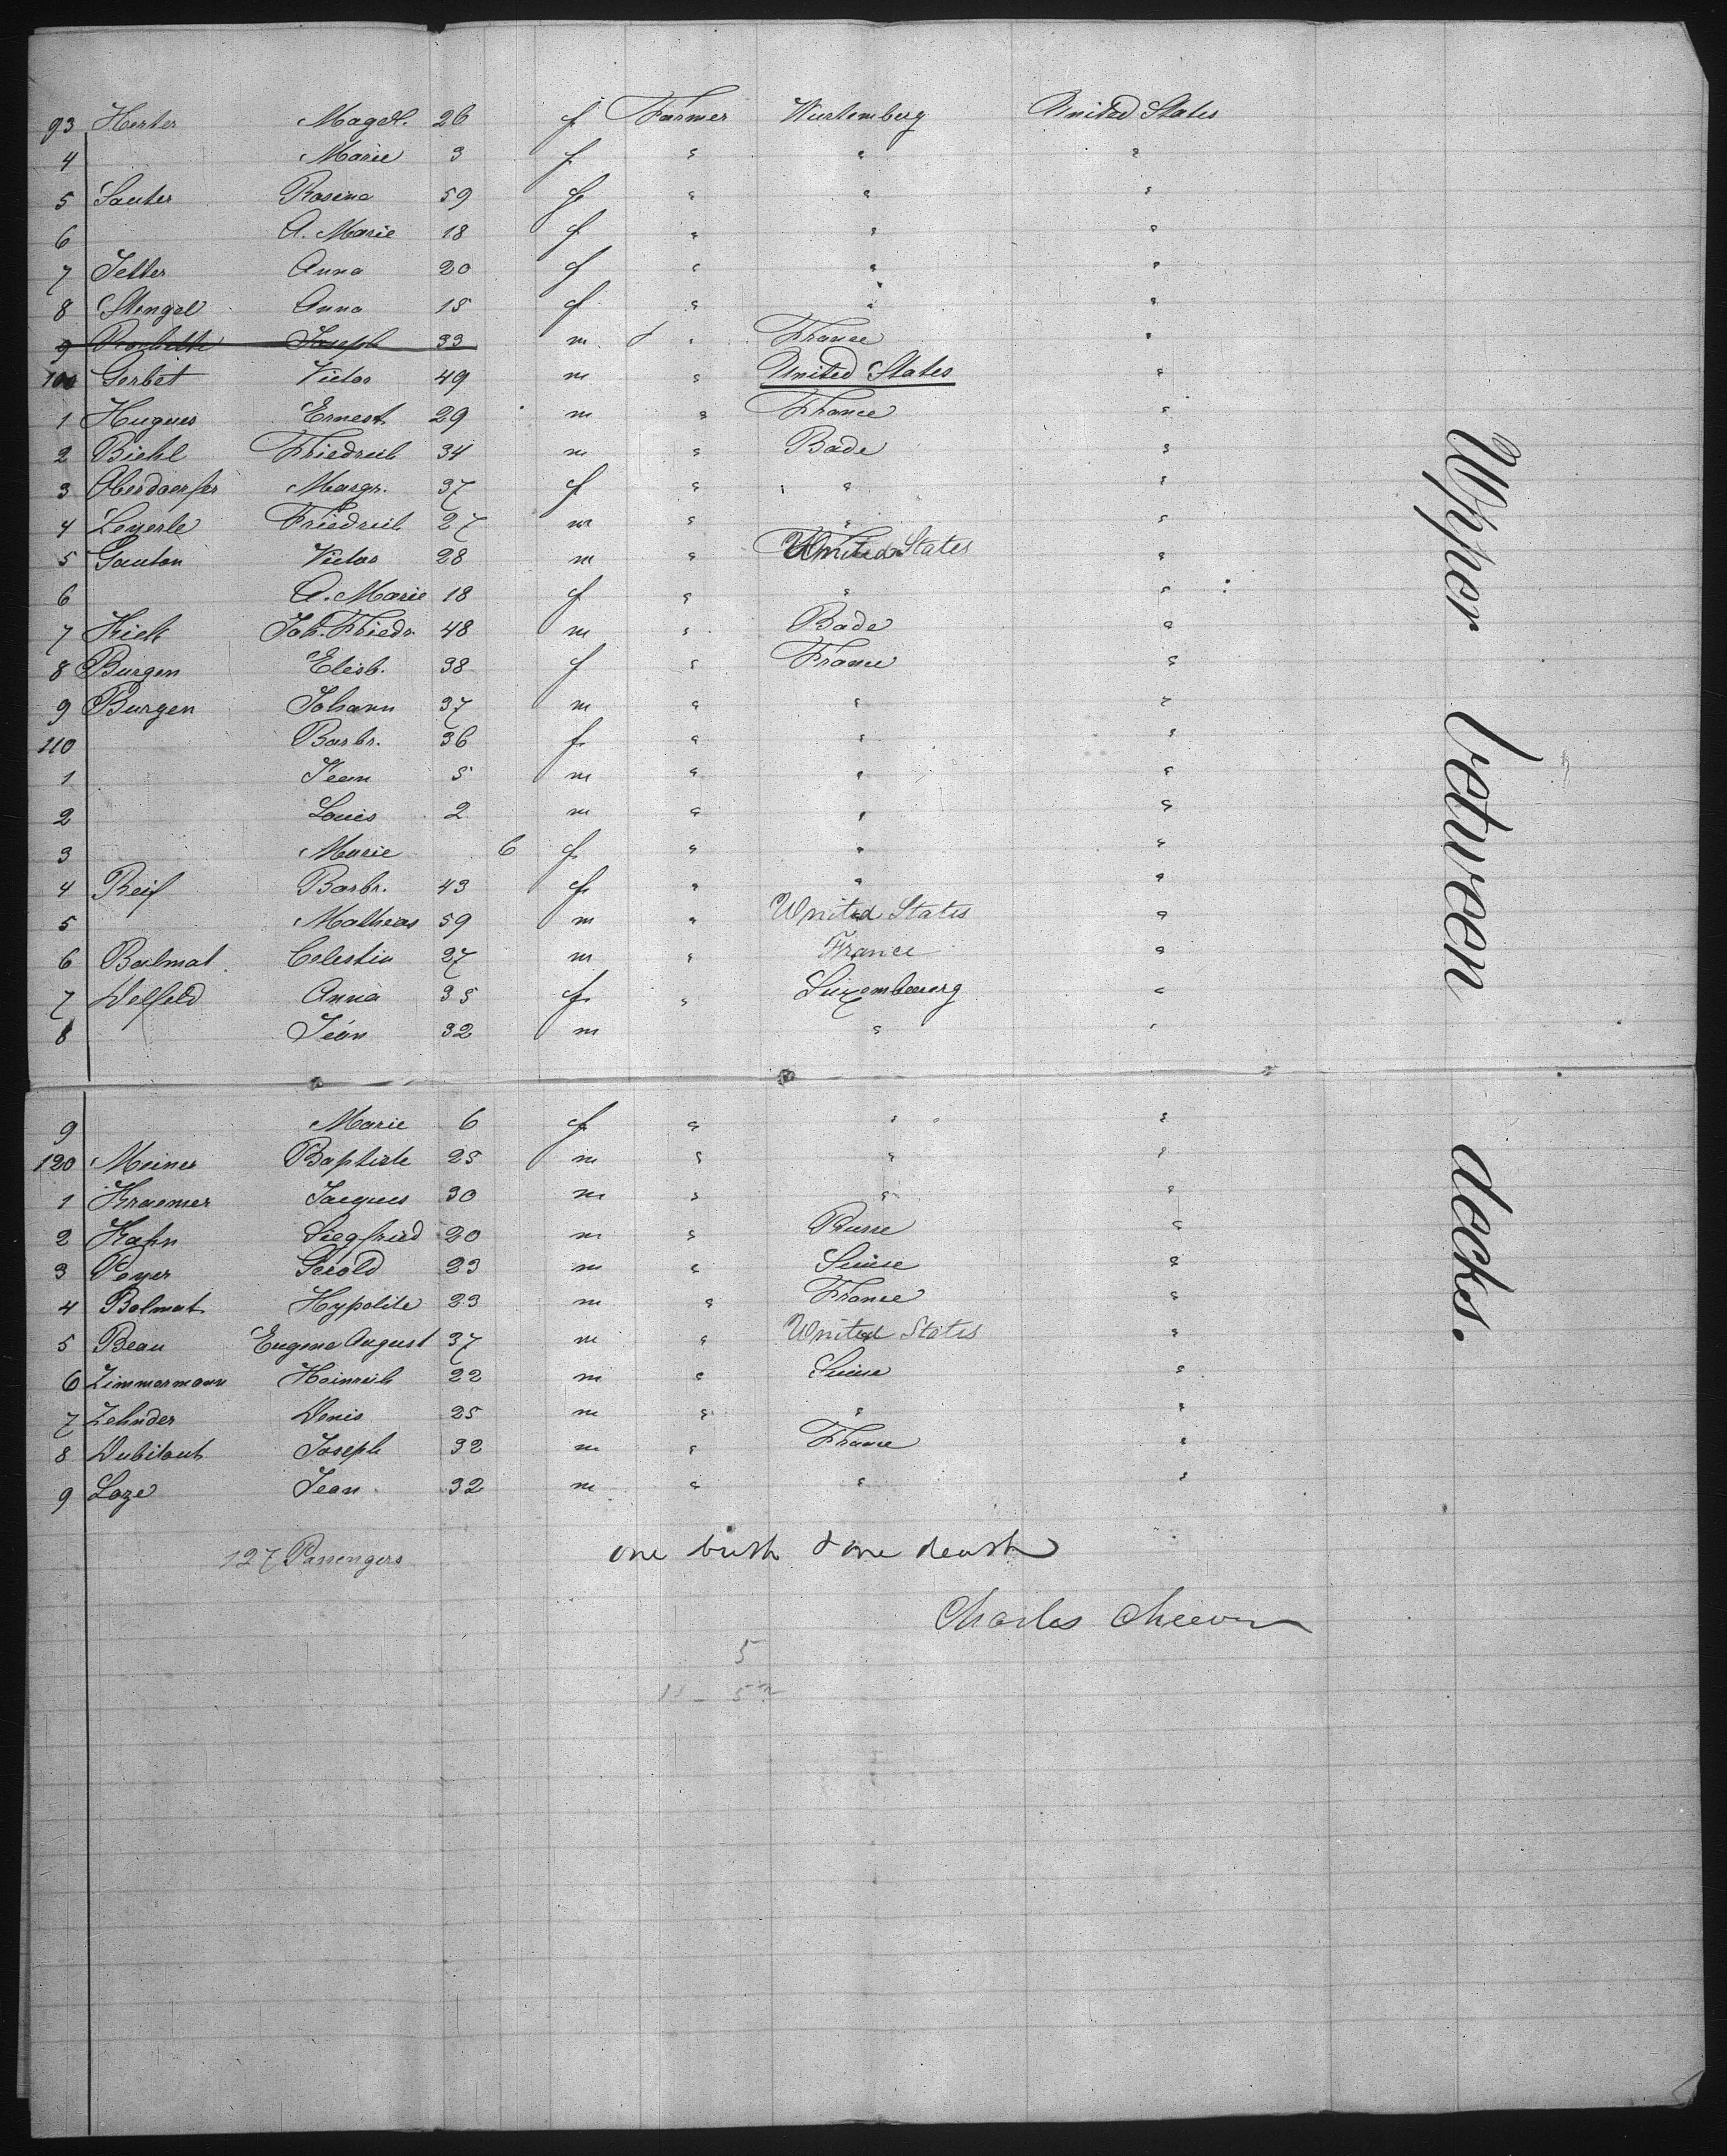 93 Herter Magdl. 26 f Farmer Wurtemberg United States
4 Marie 3 f " " "
5 Sauter Rosina 59 f " " "
6 A. Marie 18 f " " "
7 Jetter Anna 20 f " " "
8 Stengel Anna 18 f " " "
9 Joseph 33 m " France "
100 Gerbet Victor 49 m " United States "
1 Hugues Ernest 29 m " France "
2 Biehl Friedrich 34 m " Bade "
3 Oberdoerfer Margr. 37 f " " "
4 Leyerle Friedrich 27 m " " "
5 Gauton Victor 28 m " United States "
6 A. Marie 18 f " " "
7 Kick Joh. Friedr. 48 m " Bade "
8 Burgen Elisb. 38 f " France "
9 Burgen Johann 37 m " " "
110 Barbr. 36 f " " "
1 Jean 5 m " " "
2 Louis 2 m " " "
3 Marie 6 f " " "
4 Reif Barbr. 43 f " " "
5 Mathias 59 m " United States "
6 Balmat Celestin 27 m " France "
7 Welfeld Anna 35 f " Luxembourg "
8 Jean 32 m " "
9 Marie 6 f " " "
120 Meiner Baptiste 25 m " " "
1 Kraemer Jacques 30 m " " "
2 Kahn Siegfried 20 m " Prusse "
3 Peyer Gerold 23 m " Suisse "
4 Balmat Hypolite 23 m " France "
5 Beau Eugene August 37 m " United States "
6 Zimmermann Heinrich 22 m " Suisse "
7 Zehnder Denis 25 m " " "
8 Dubitout Joseph 32 m " France "
9 Loze Jean 32 m " " "
127 Passengers one birth & one death
Charles Cheever
5
Upper between decks.